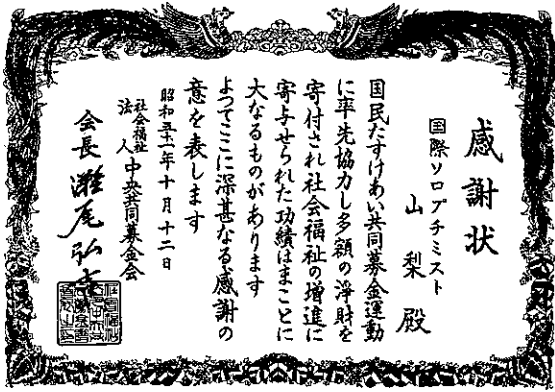 感謝状
国際ソロプチミスト
山梨殿
国民たすけあい共同募金運動
に率先協力し多額の浄財を
寄付され社会福祉の増進に
寄与せられた功績はまことに
大なるものがあります
よつてここに深甚なる感謝の
意を表します
昭和五十一年十月十二日
社会福祉
法人中央共同募金会
会長 瀬尾弘吉